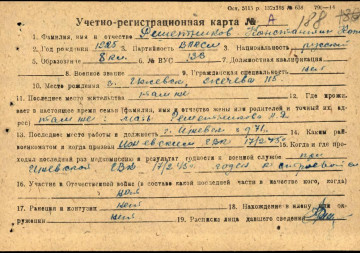 Учетно-регистрационная карта № А 188
1. Фамилия, имя и отчество Решетников Константин
2. Год рождения 1925 3. Партийность ВЛКСМ 4. Национальность русский
5. Образование 6 кл. 6. № ВУС 133 7. Должностная квалификация
8. Военное звание 9. Гражданская специальность нет
10. г. Ижевск,
11. Последнее место жительства там же 12. Где прожи-
вает в настоящее время семья (фамилия, имя и отчество жены или родителей и точный их адрес) там же: мать Решетникова
13. Последнее место работы и должность г. Ижевск з-д 71. 14. Каким рай-
военкоматом и когда призван Ижевским 17/2 43 г. 15. Когда и где про-
ходил последний раз медкомиссию и результат годности к военной службе при
Ижевском ГВК 17/2 43 г. годен к строевой сл
16. Участие в Отечественной войне (в составе какой последней части и качестве кого, когда)
нет
17. Ранения и контузии нет 18. Нахождение в плену или ок-
ружении нет 19. Расписка лица давшего сведения